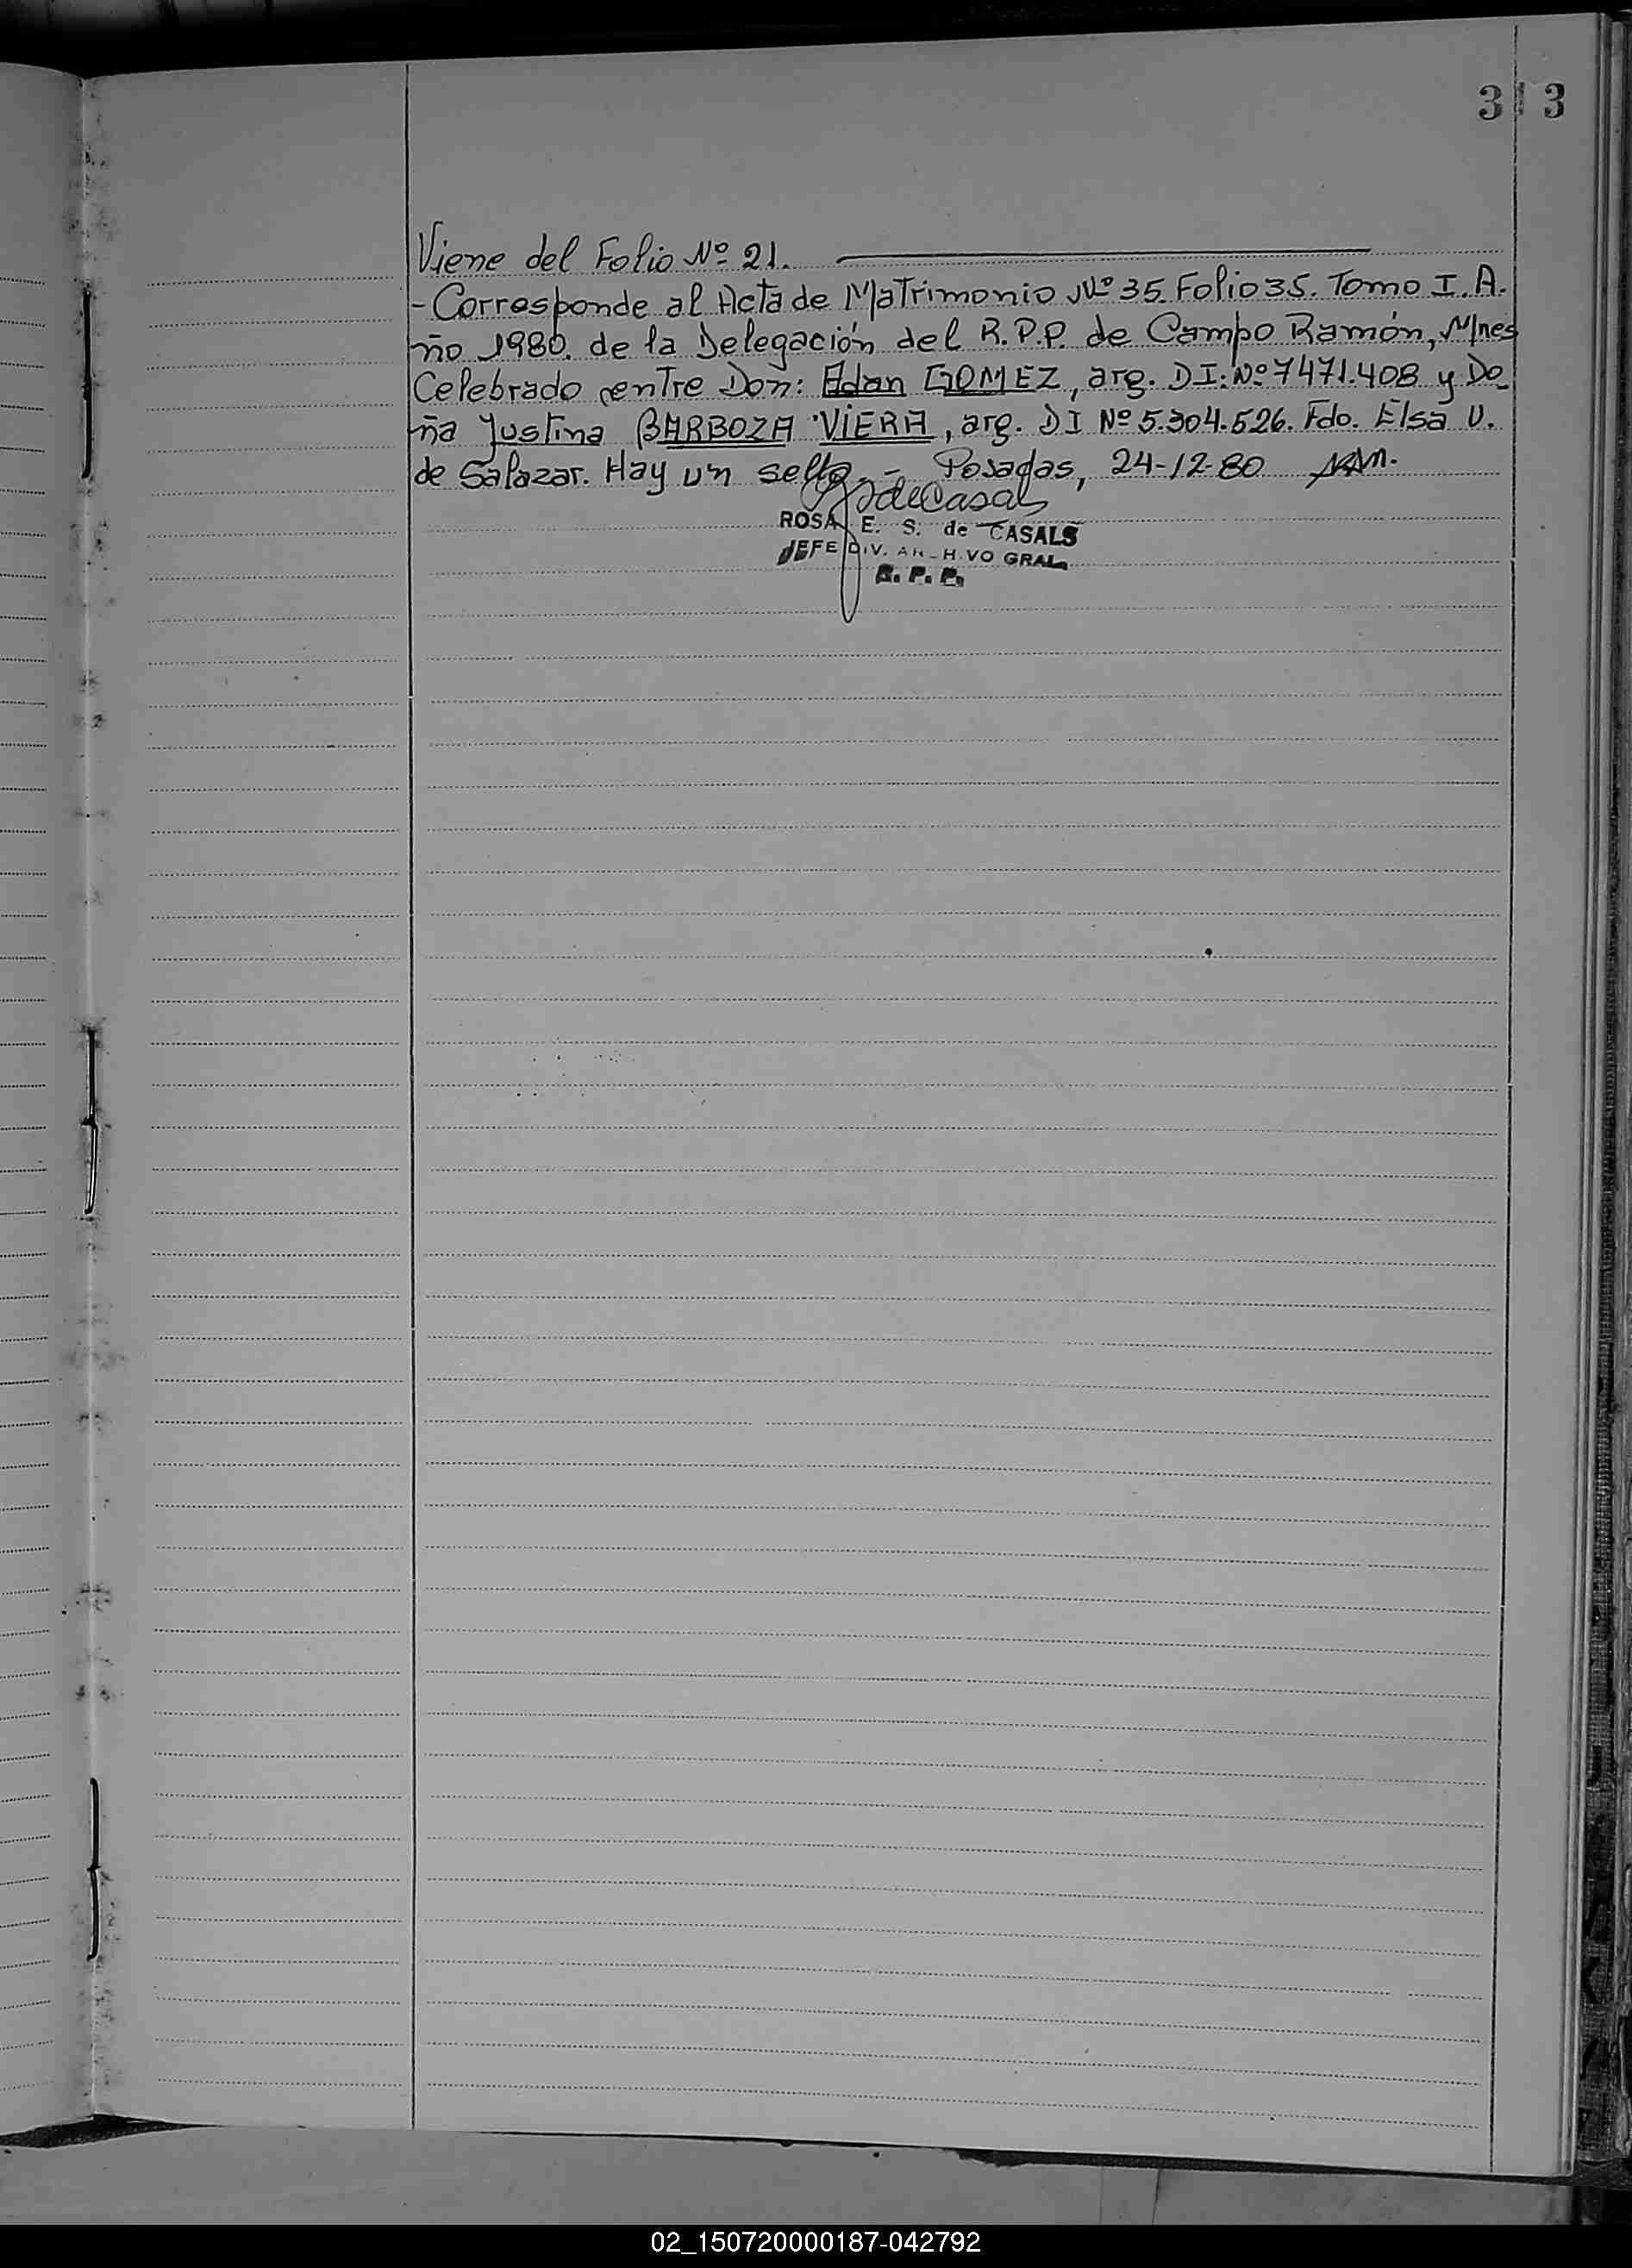 3 3
Viene del Folio Nº 21.
- Corresponde al Acta de Matrimonio Nº 35. Folio 35. Tomo I. A-
ño 1980. de la Delegación del R.P.P. de Campo Ramón, Mnes
Celebrado entre Don: Adan GOMEZ, arg. DI: Nº 7471.408 y Do-
ña Justina BARBOZA VIERA, arg. DI Nº 5.304.526. Fdo. Elsa U.
de Salazar. Hay un sello.- Posadas, 24-12-80
SdeCasals
ROSA E. S. de CASALS
JEFE DIV. ARCHIVO GRAL.
R. P. P.
02_150720000187-042792